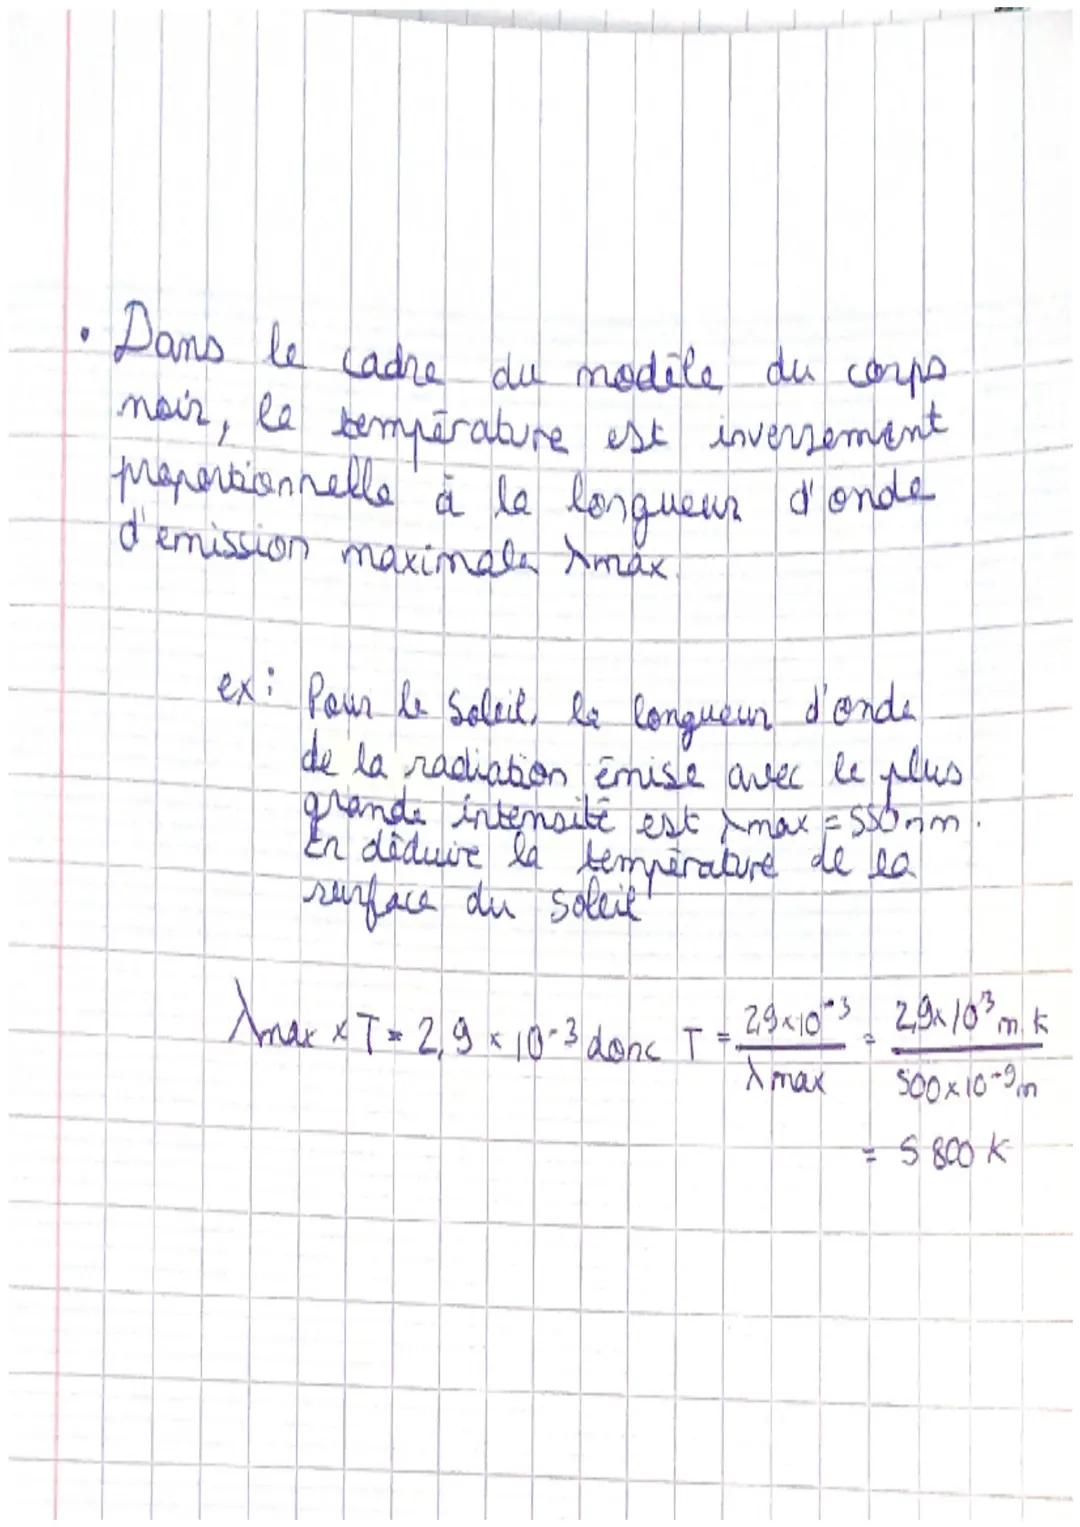 • Dans le cadre du modèle du corps
noir, la température est inversement
proportionnelle à la longueur d'onde
d'émission maximale λmax.
ex: Pour le Soleil, la longueur d'onde
de la radiation émise avec le plus
grande intensité est λmax = 550nm.
En déduire la température de la
surface du Soleil
λmax × T = 2,9 × 10-3 donc T = 2,9×10-3 / λmax = 2,9×10³ m.k / 500×10-9m
= 5 800 K